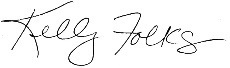 Kelly Folks